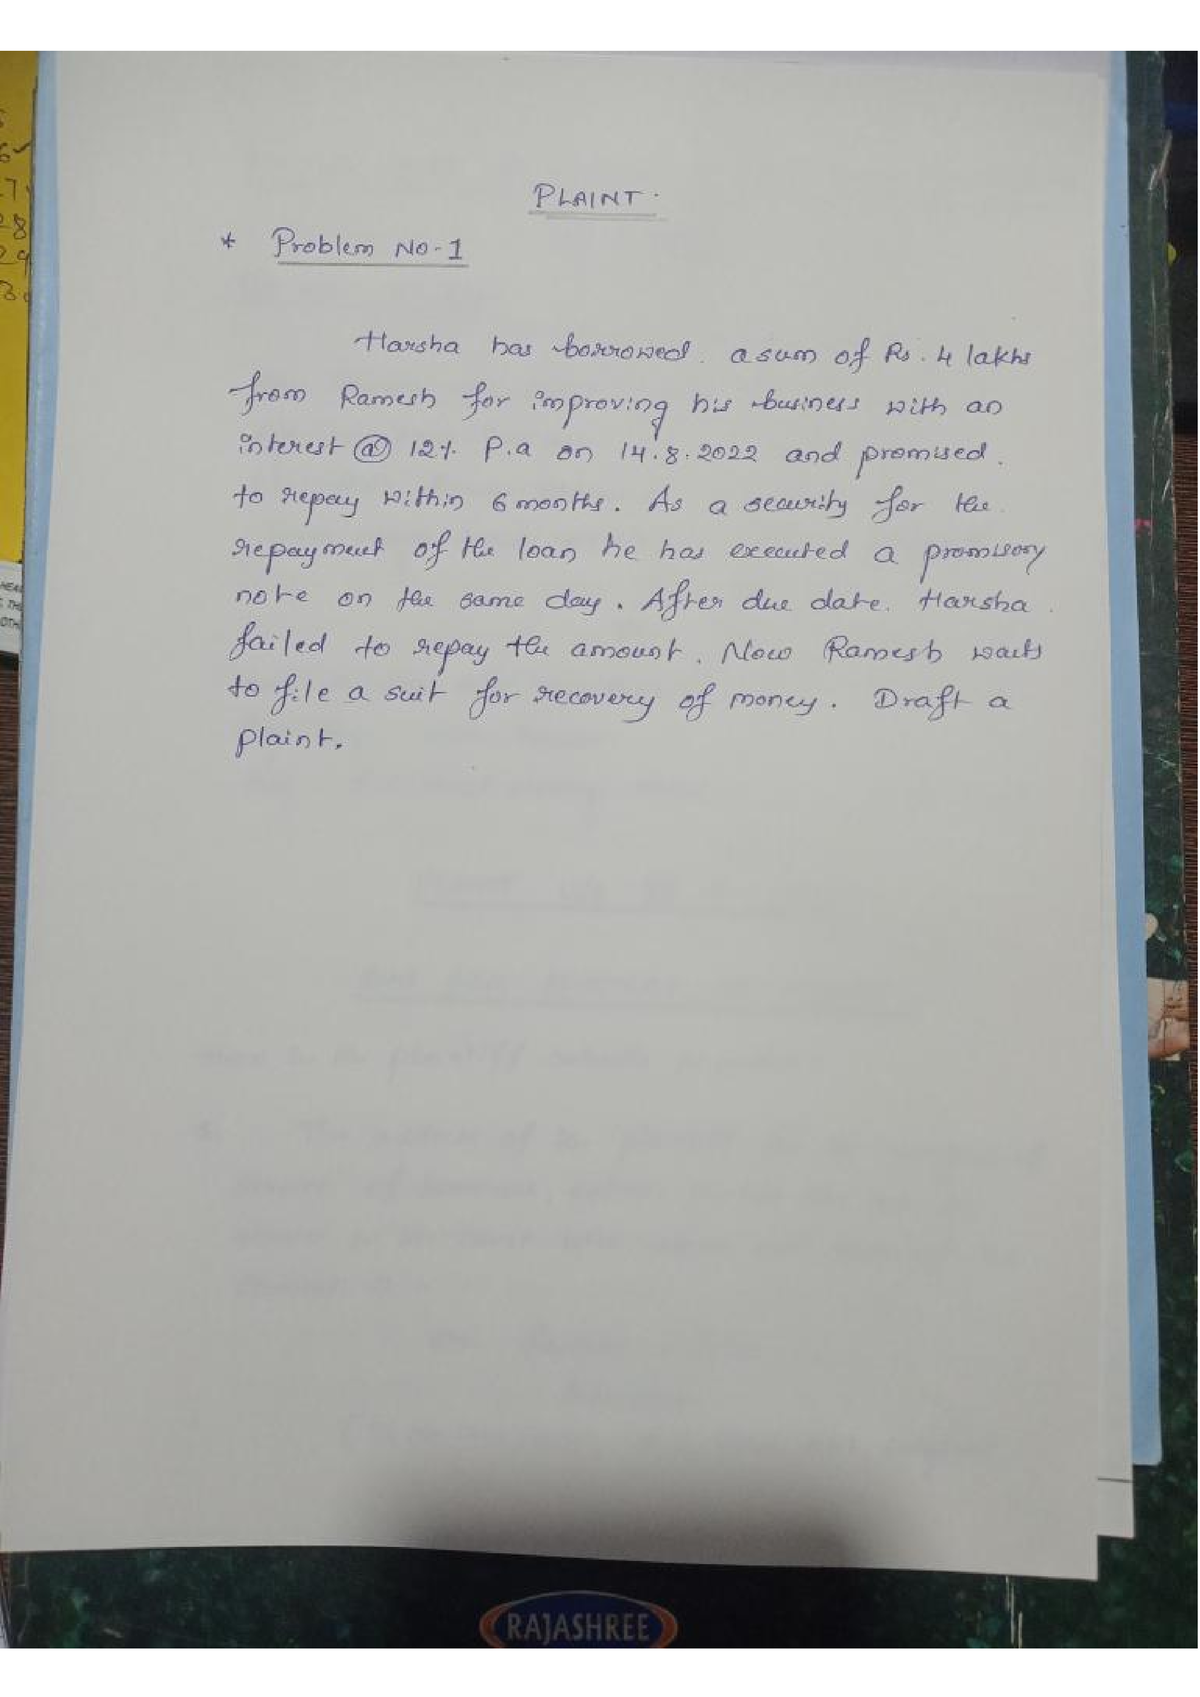 PLAINT.
* Problem No-1
Harsha has borrowed a sum of Rs. 4 lakhs
from Ramesh for improving his business with an
interest @ 12% P.a on 14.8.2022 and promised
to repay within 6 months. As a security for the
repayment of the loan he has executed a promisory
note on the same day. After due date. Harsha
failed to repay the amount. Now Ramesh wants
to file a suit for recovery of money. Draft a
plaint.
RAJASHREE